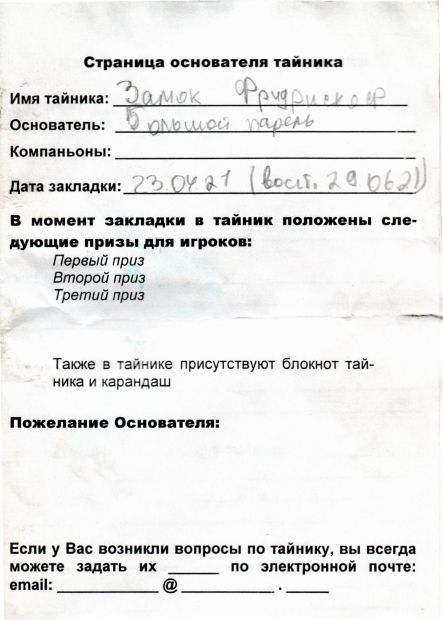 Страница основателя тайника
Имя тайника: Замок
Основатель: Большой парень
Компаньоны:
Дата закладки: 23.04.21 (восст. 29.0621)
В момент закладки в тайник положены сле-
дующие призы для игроков:
Первый приз
Второй приз
Третий приз
Также в тайнике присутствуют блокнот тай-
ника и карандаш
Пожелание Основателя:
Если у Вас возникли вопросы по тайнику, вы всегда
можете задать их ______ по электронной почте:
email: ____________ @ ___________ . _____